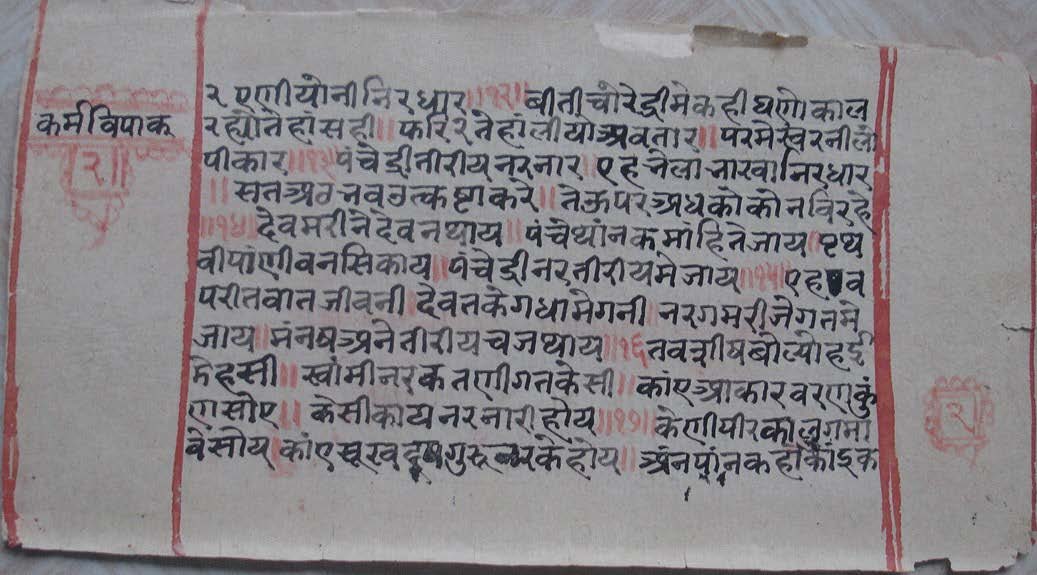 कर्मविपाक
२॥
र एणी योनी निरधार ॥१२॥ बीती चोरेद्री मे कही घणो काल
रह्यो तेहां सही ॥ फरि२ तेहां लीयो अवतार ॥ परमेस्वर नी लो
पीकार ॥१३॥ पंचेद्री तीरीय नर नार ॥ एह जेला नारवा निरधार
॥ सत अठ नव उत्कष्टा करे ॥ ते ऊपर अधको को न विरहे
॥१४॥ देव मरी ने देव न थाय ॥ पंचे थांनक मांहि ते जाय ॥ प्रथ
वी पांणी वनसिकाय ॥ पंचेद्री नर तीरीय मे जाय ॥१५॥ एह व
परीत वात जीवनी ॥ देवत के गधा मे गनी ॥ नरग मरी जे गत मे
जाय ॥ मंनष अने तीरीयच ज थाय ॥१६ तव शीष बोल्यो हई
मे हसी ॥ स्वांमी नरक तणी गत केसी ॥ कांए आकार वरण कुं
ण सोए ॥ केसी काय नर नारी होय ॥१७॥ केणी पीर काल गमा
वे सोय कांए सूख गुरू के होय ॥ अंन पांन कहां
२